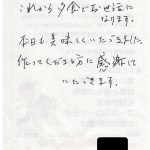 これから夕食でお世話に
なります。
本日も美味しくいただきました。
作ってくださる方に感謝して
いただきます。